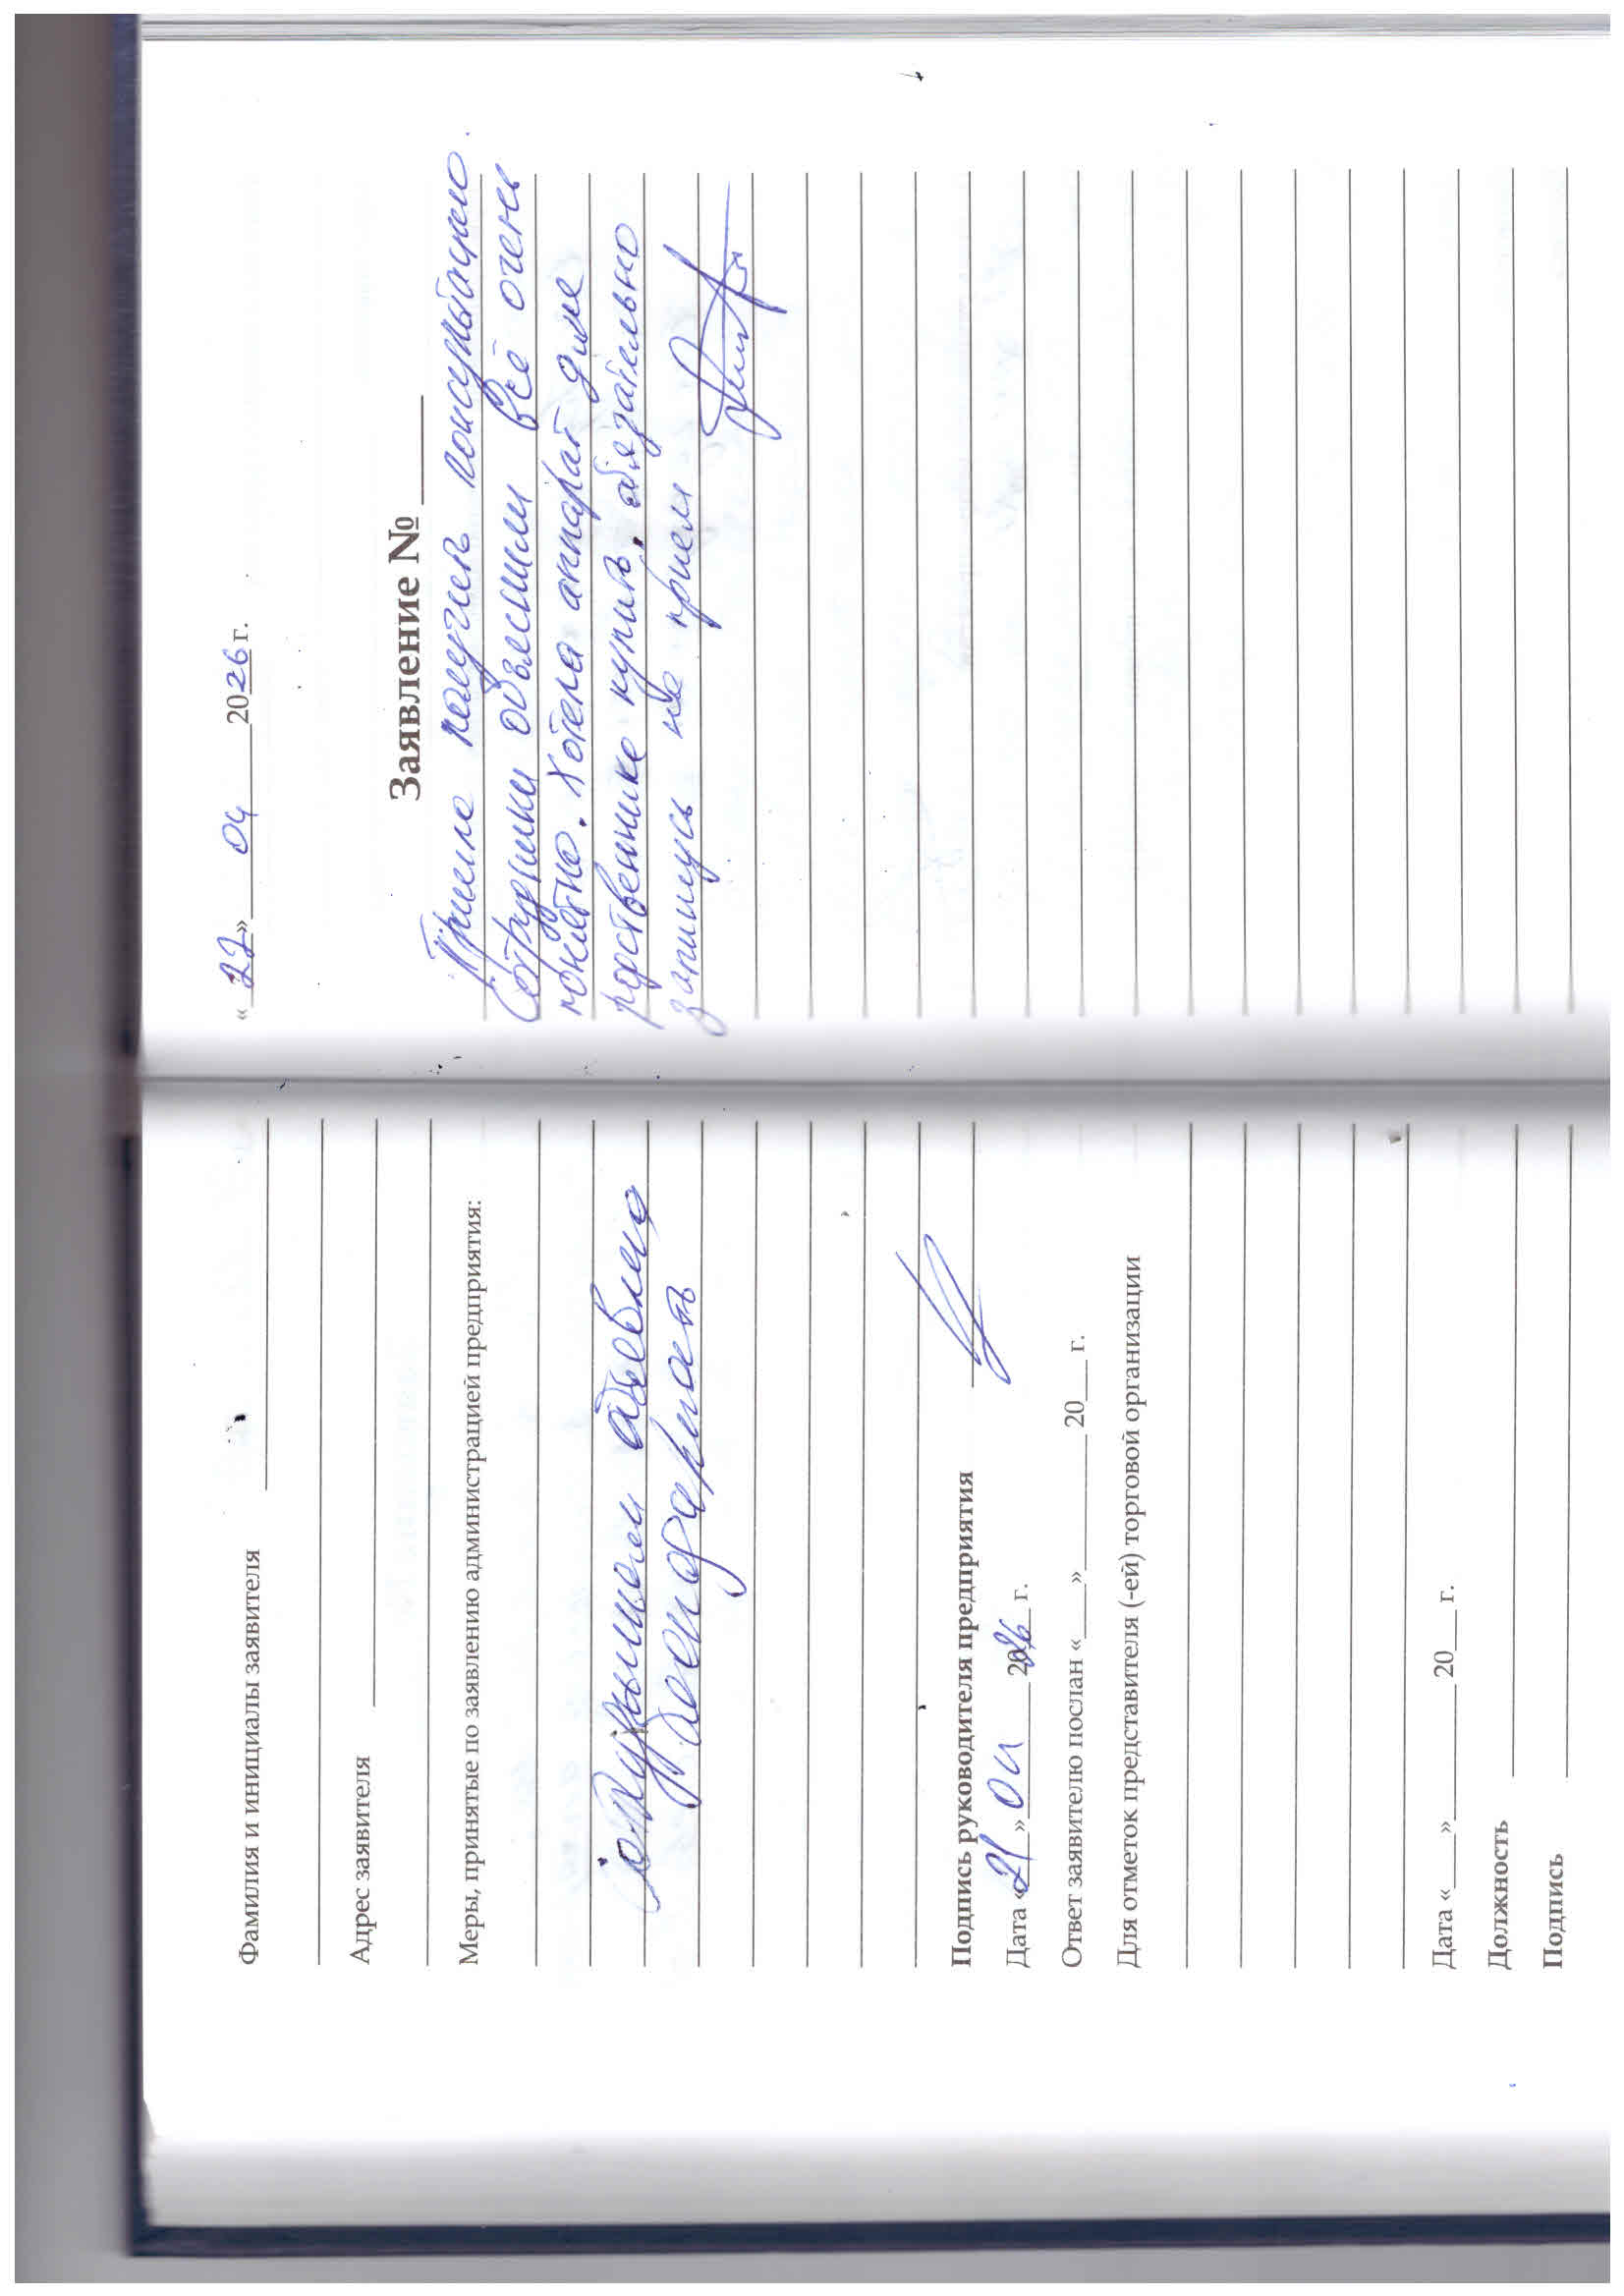 Фамилия и инициалы заявителя
Адрес заявителя
Меры, принятые по заявлению администрацией предприятия:
объявлена
благодарность
Подпись руководителя предприятия
Дата «21» 04 2026 г.
Ответ заявителю послан «___» ______ 20___ г.
Для отметок представителя (-ей) торговой организации
Дата «___» ______ 20___ г.
Должность
Подпись
«22» 04 2026 г.
Заявление № ____
получив консультацию.
Сотрудники объяснили всё очень
понятно. Хотела аппарат для
родственнике купить. обязательно
запишусь на прием